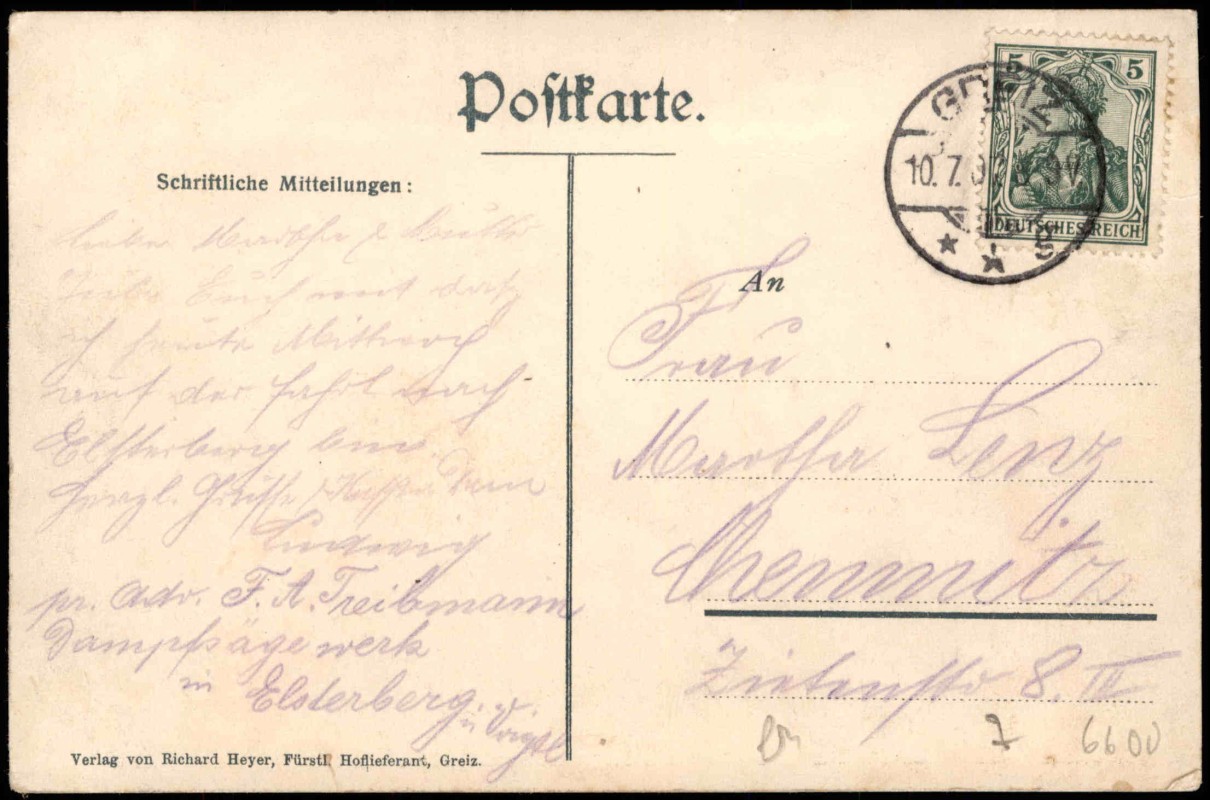 Postkarte.
Schriftliche Mitteilungen:
Liebe Martha & Mutter
Teile Euch mit daß
ich heute Mittwoch
auf der Fahrt nach
Elsterberg bin.
Herzl. Grüsse & Küsse Dein
Ludwig
pr. Adr. F. A. Treibmann
Dampfsägewerk
in Elsterberg.
in Voigtl
Verlag von Richard Heyer, Fürstl. Hoflieferant, Greiz.
5 5
DEUTSCHES REICH
GREIZ
10. 7.
An
Frau
Martha Lenz
Chemnitz
Zietenstr 8. III
7 6600